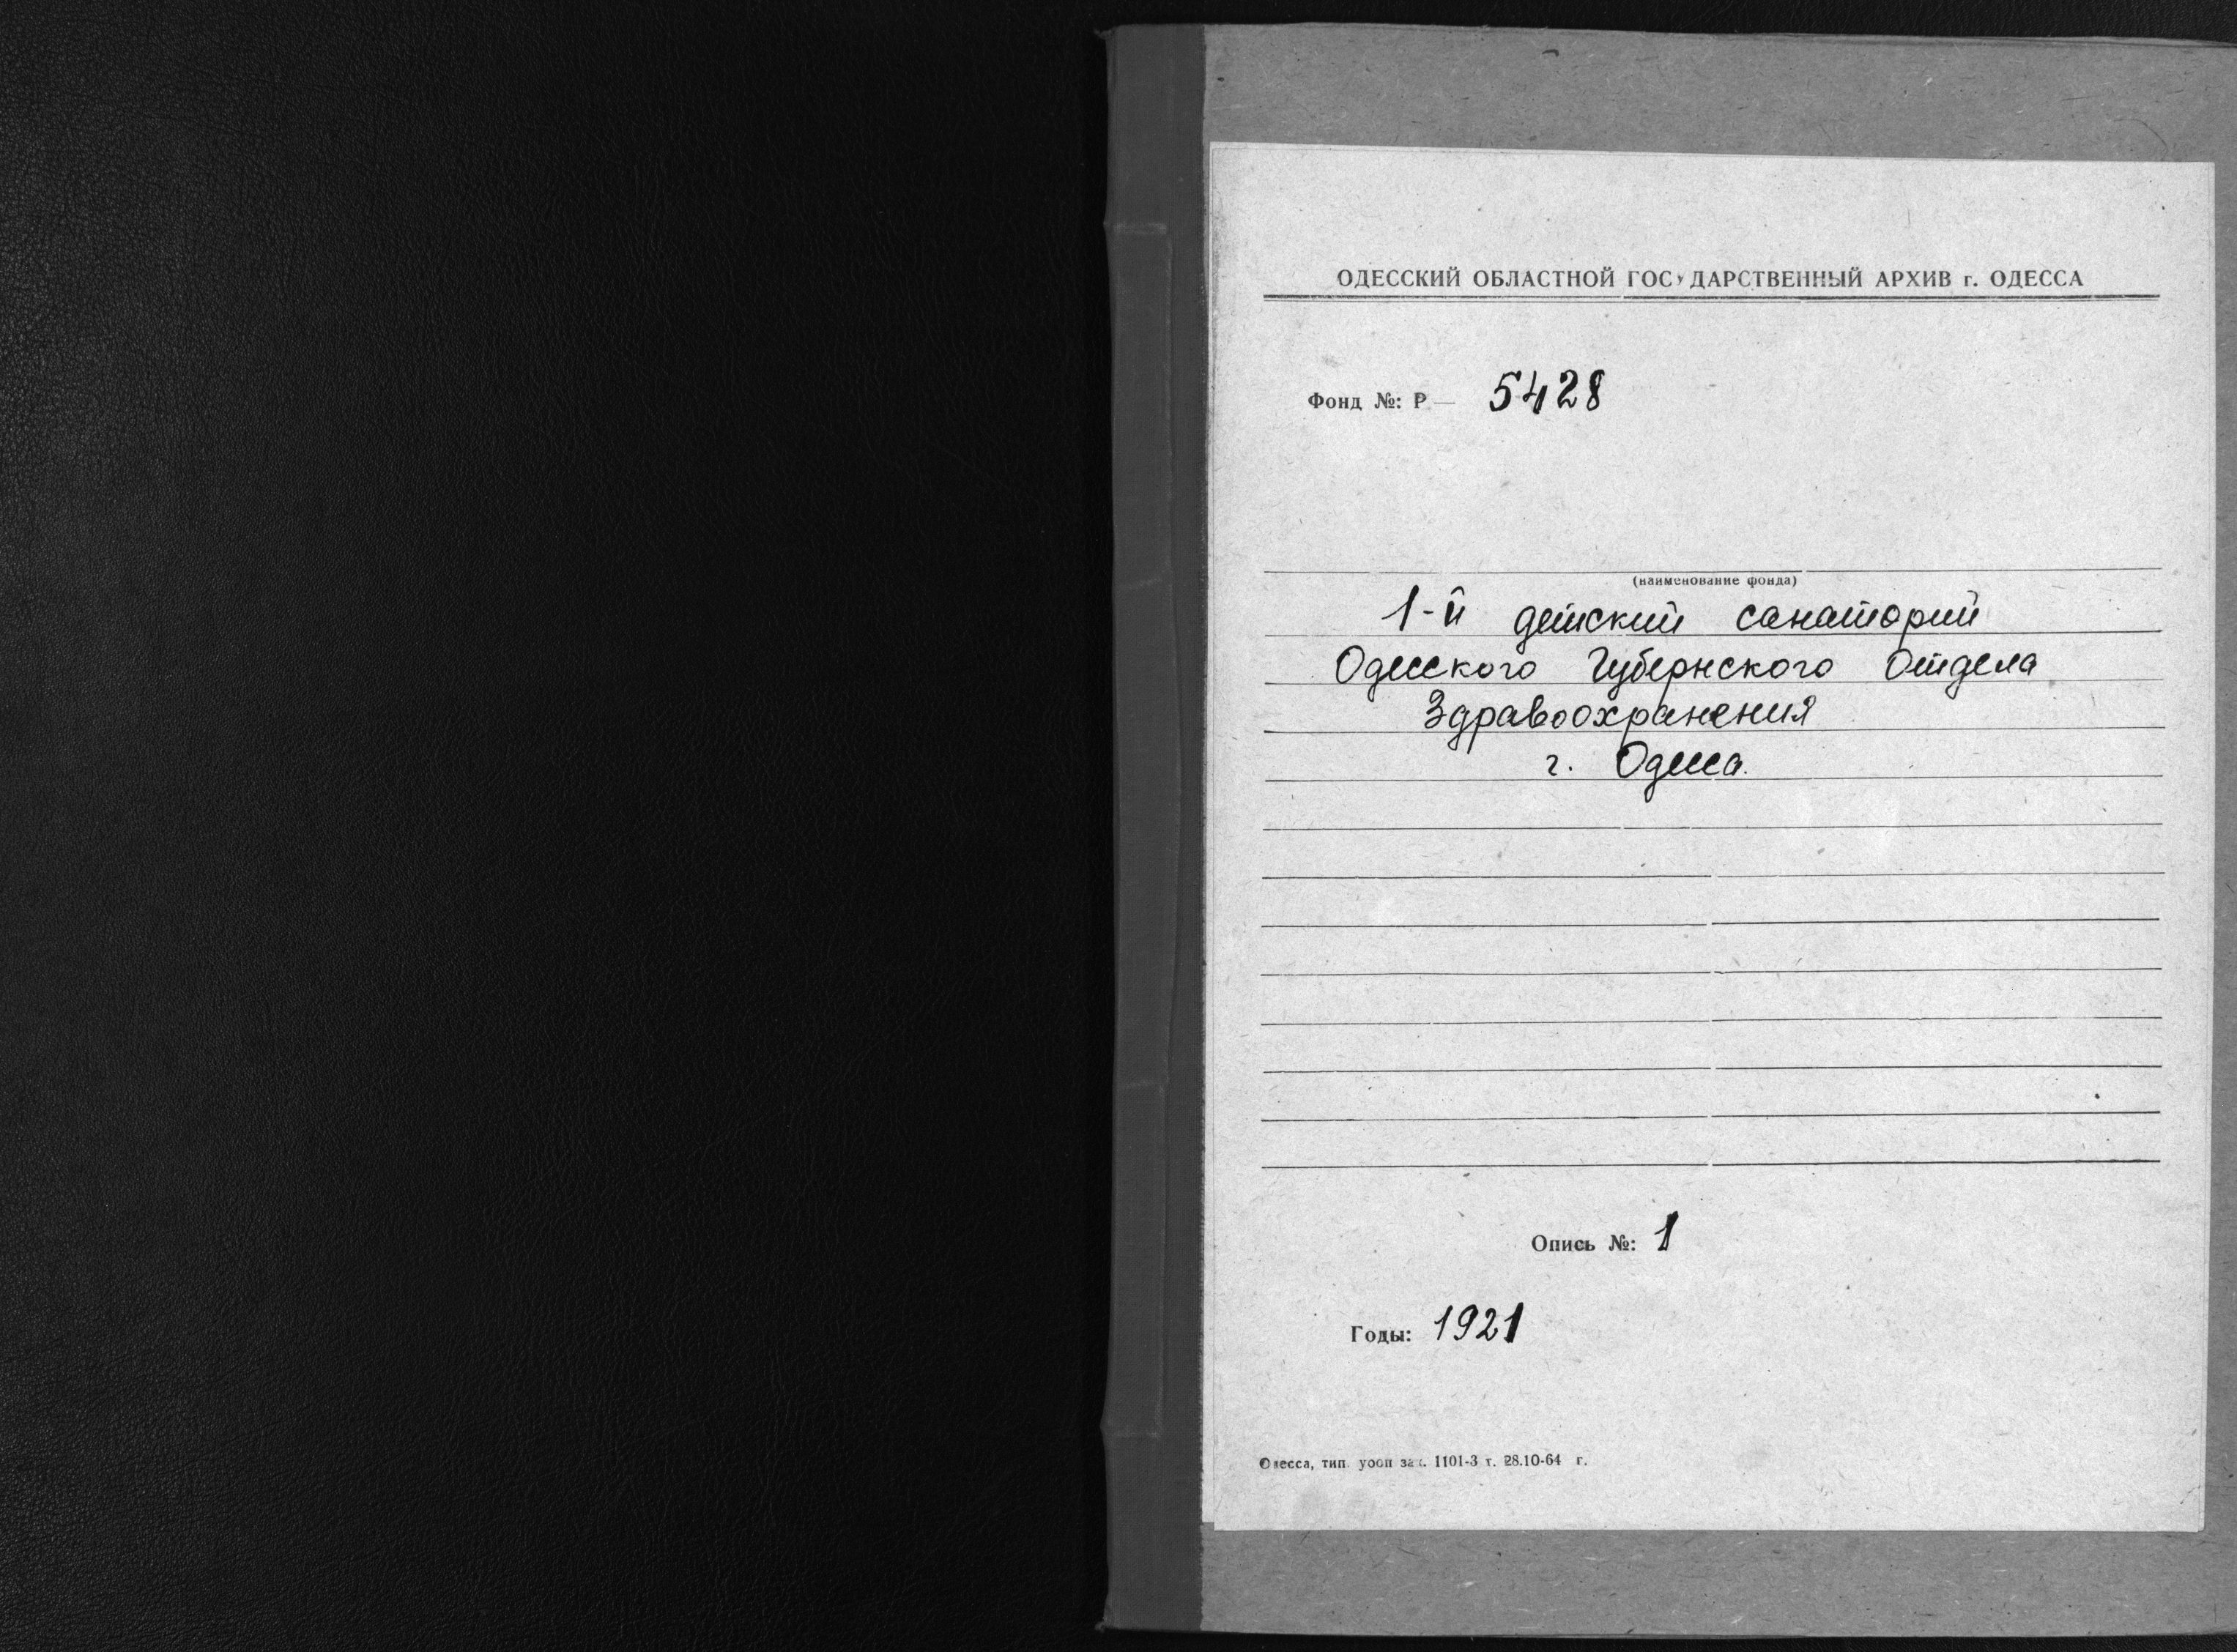 ОДЕССКИЙ ОБЛАСТНОЙ ГОСУДАРСТВЕННЫЙ АРХИВ г. ОДЕССА
Фонд №: Р — 5428
(наименование фонда)
1-й детский санаторий
Одесского Губернского Отдела
Здравоохранения
г. Одесса.
Опись №: 1
Годы: 1921
Одесса, тип. уооп зак. 1101-3 т. 28.10-64 г.